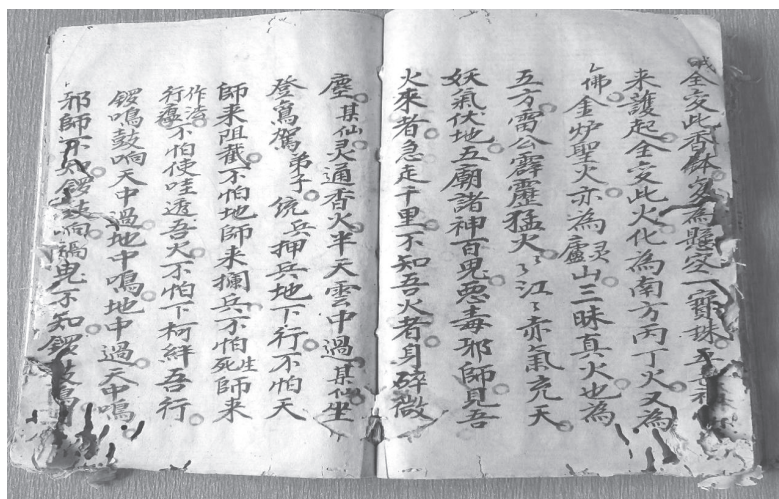 全变此香變為懸空一寶珠
来護起全变此火化為南方丙丁火又為
佛金炉聖火亦為灵廬山三昧真火也為
五方雷公霹靂猛火々江々赤氣充天
妖氣伏地五廟諸神百鬼惡毒邪師見吾
火來者急走千里不知吾火者身碎微
塵某仙灵通香火半天雲中過某仙坐
登鸾駕弟子統兵押兵地下行不怕天
師来阻截不怕地師来攔兵不怕生死師来
作法行不怕使哇透吾火不怕下柯絆吾行
鑼鳴鼓响天中過地中鳴地中過天中鳴
邪師不知鑼鼓响禍鬼不知鑼鼓鳴